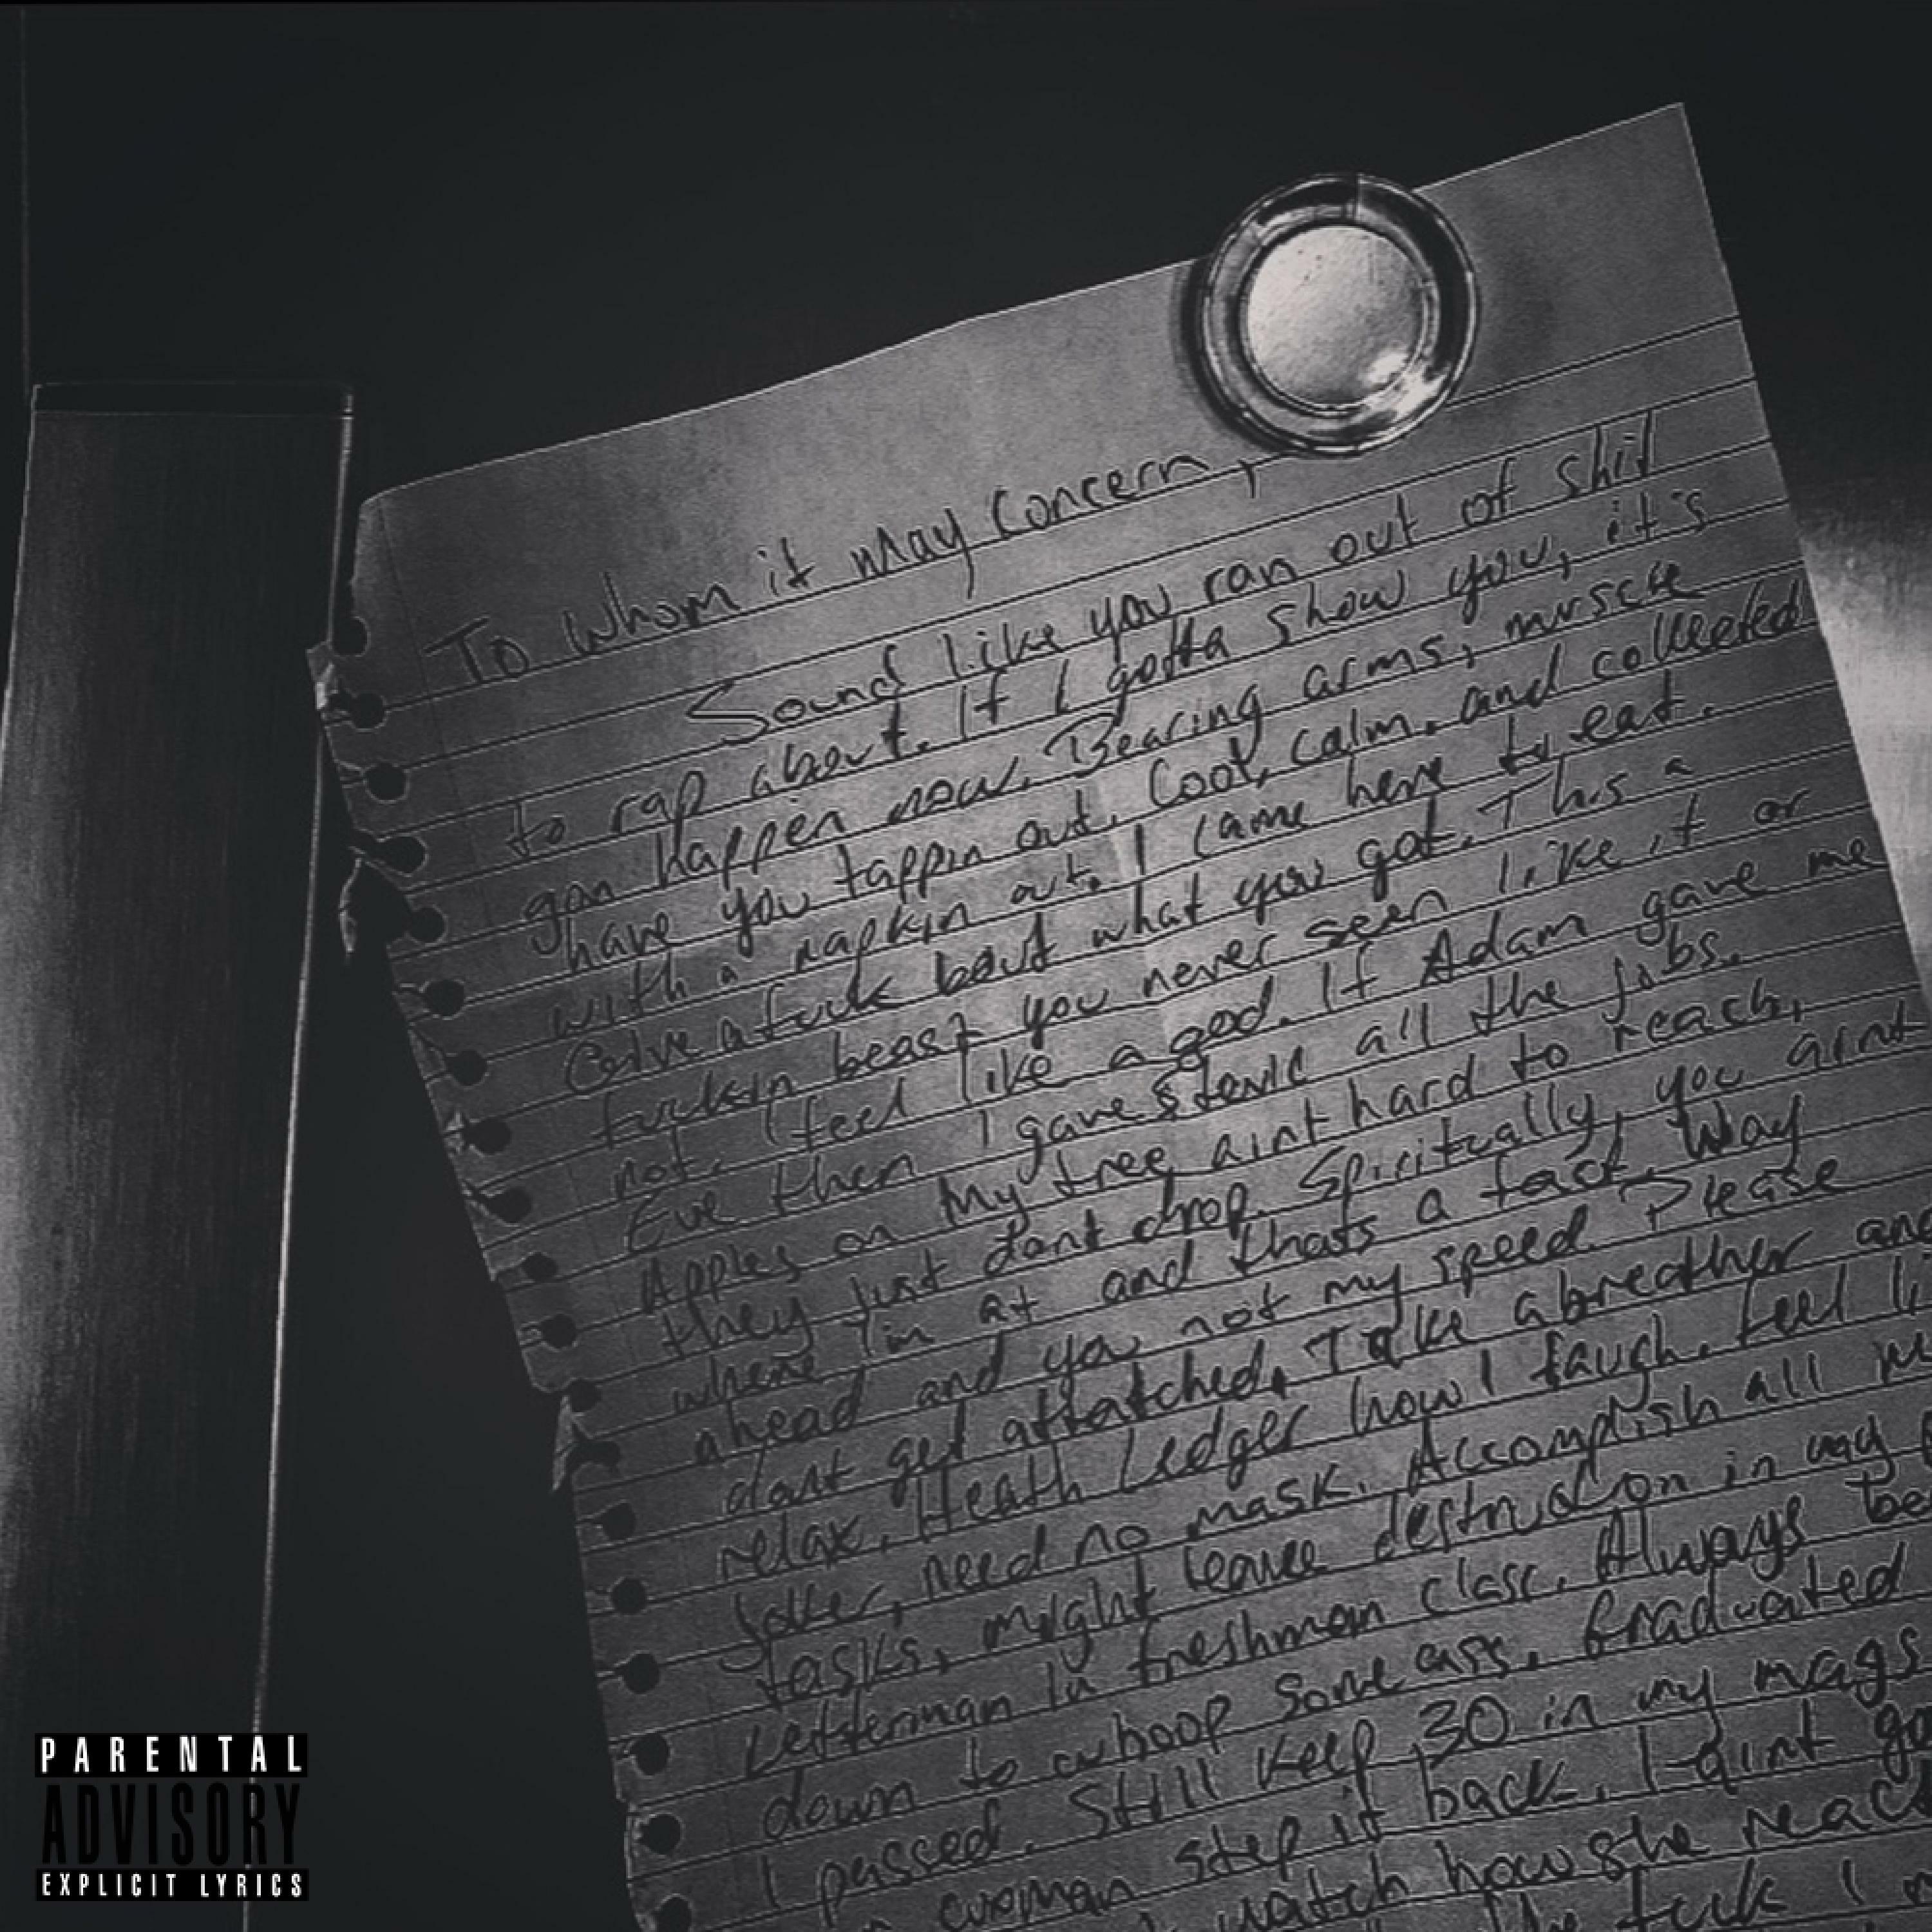 To whom it may concern,
Sound like you ran out of shit
to rap about. If I gotta show you, it's
gon happen now. Bearing arms, muscle
have you tappin out. Cool, calm, and collected
with a napkin out. I came here to eat.
a fuck bout what you got. This a
fuckin beast you never seen like it or
not. I feel like a god. If Adam gave me
Eve then I gave Stevie all the jobs.
Apples on my tree aint hard to reach,
they just dont drop. Spiritually, you aint
where I'm at and thats a fact. Way
ahead and you not my speed. Please
dont get attatched. Take a breather and
relax. Heath Ledger how I laugh. feel
Joker, need no mask. Accomplish all
tasks, might leave destruction in my
Letterman in freshman class. Always
down to whoop some ass. Graduated
I passed. Still keep 30 in my mags
woman step it back. I aint
watch how she
fuck I
PARENTAL
ADVISORY
EXPLICIT LYRICS